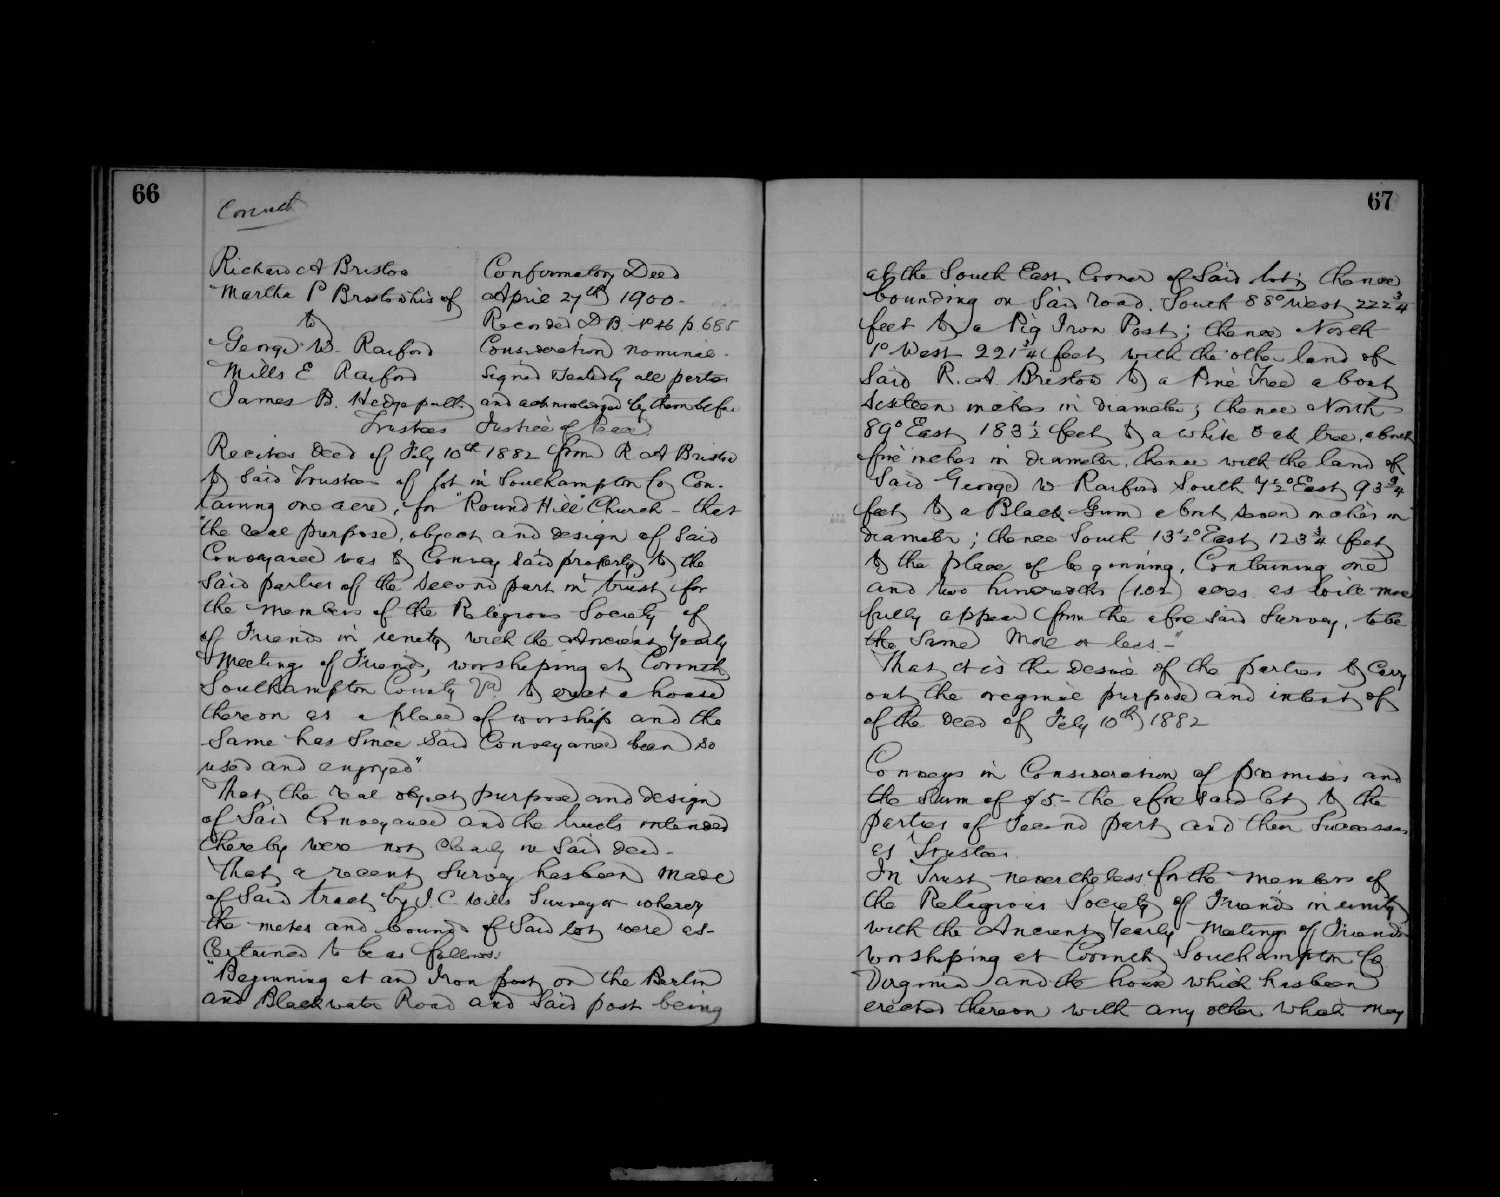 66
Corinth
Richard A Bristow
Martha P Bristow his wf
to
George W. Raiford
Mills E Raiford
James B. Hedgepeth
Trustees
Confirmatory Deed
April 27th 1900-
Recorded D.B. No 46 p 685
Consideration nominal.
Signed Sealed by all parties
and acknowledged by them before
Justice of Peace
Recites Deed of Feby 10th 1882 from R A Bristow
to said Trustees of lot in Southampton Co Con-
taining one acre, for "Round Hill" Church - that
"the real purpose, object and design of said
Conveyance was to Convey said property to the
said parties of the second part in trust for
the members of the Religious Society of
of Friends in unity with the Ancient Yearly
Meeting of Friends, worshiping at Corinth
Southampton County Va, to erect a house
thereon as a place of worship and the
same has since said Conveyance been so
used and enjoyed"
That the real object purpose and design
of said Conveyance and the trusts intended
thereby were not clearly in said deed-
That a recent survey has been made
of said tract by J.C. Wills Surveyor whereby
the metes and bounds of said lot were as-
certained to be as follows:
"Beginning at an Iron post on the Berlin
and Blackwater Road and said post being
67
at the South East Corner of said lot; thence
bounding on said road. South 88° West 222 3/4
feet to a Pig Iron Post; thence North
1° West 221 3/4 feet with the other land of
said R. A Bristow to a Pine Tree about
sixteen inches in diameter; thence North
89° East 183 1/2 feet to a white oak tree, about
five inches in diameter, thence with the land of
said George W Raiford South 7 1/2° East 93 3/4
feet to a Black Gum about seven inches in
diameter; thence South 13 1/2° East 123 3/4 feet
to the place of beginning, Containing one
and two hundredths (1.02) acres as will more
fully appear from the aforesaid survey, to be
the same more or less.-"
That it is the desire of the parties to carry
out the original purpose and intent of
of the deed of Feby 10th 1882
Conveys in Consideration of premises and
the sum of $5.- the aforesaid lot to the
parties of second part and their successors
as Trustees.
In Trust nevertheless for the members of
the Religious Society of Friends in unity
with the Ancient Yearly Meeting of Friends
worshiping at Corinth Southampton Co
Virginia and the house which has been
erected thereon with any other which may